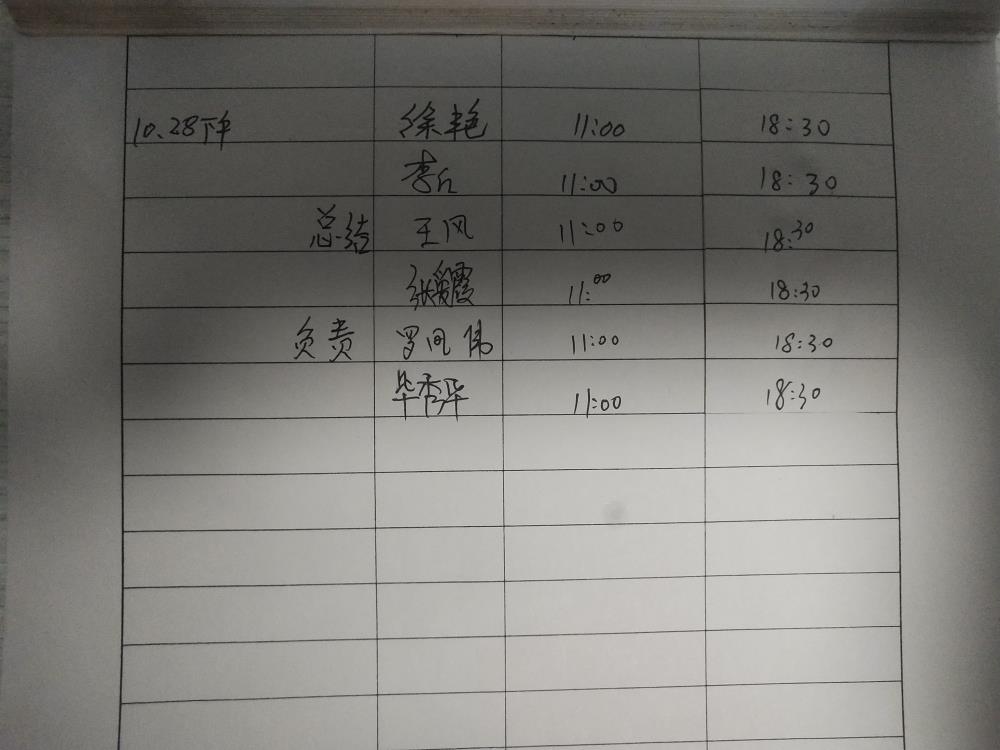 10.28下午 徐艳 11:00 18:30
李 11:00 18:30
总结 王风 11:00 18:30
张霞 11:00 18:30
负责 罗凤伟 11:00 18:30
毕秀华 11:00 18:30